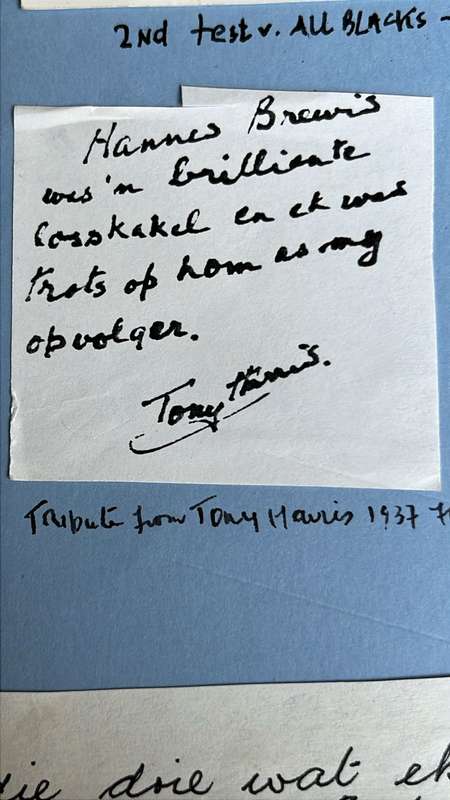 2nd test v. ALL BLACKS -
Hannes Brewis
was 'n brilliante
losskakel en ek was
trots op hom as my
opvolger.
Tony Harris.
Tribute from Tony Harris 1937
die drie wat ek